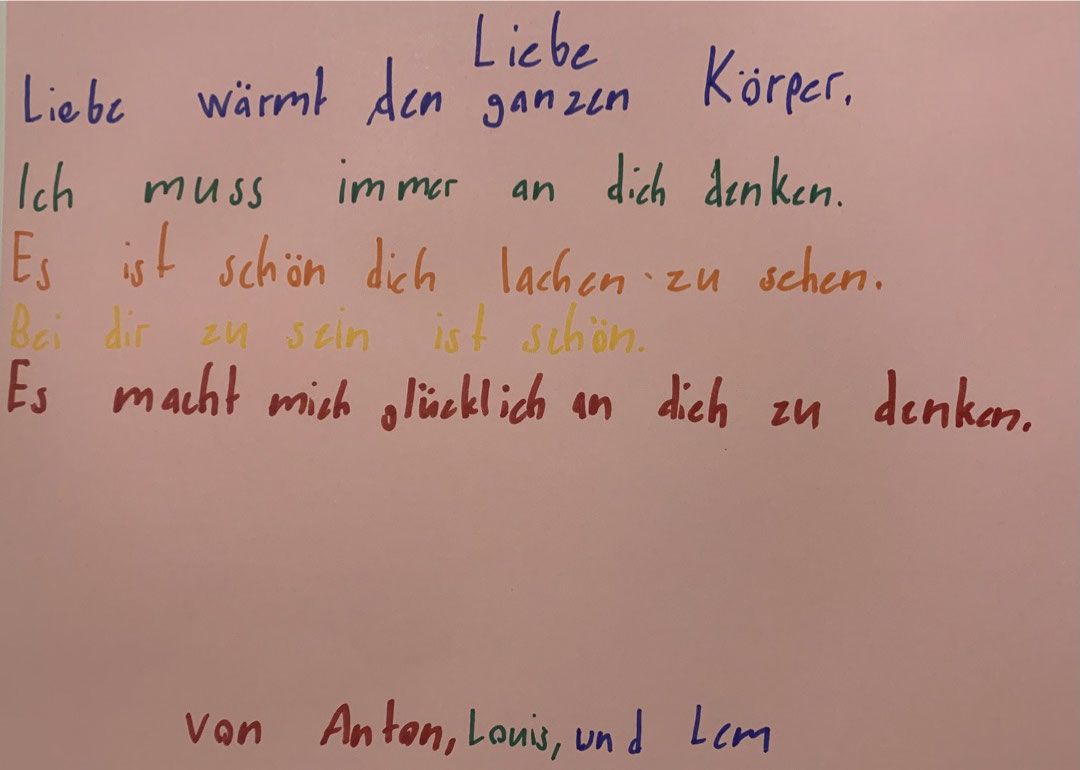 Liebe
Liebe wärmt den ganzen Körper.
Ich muss immer an dich denken.
Es ist schön dich lachen zu sehen.
Bei dir zu sein ist schön.
Es macht mich glücklich an dich zu denken.
von Anton, Louis, und Lem